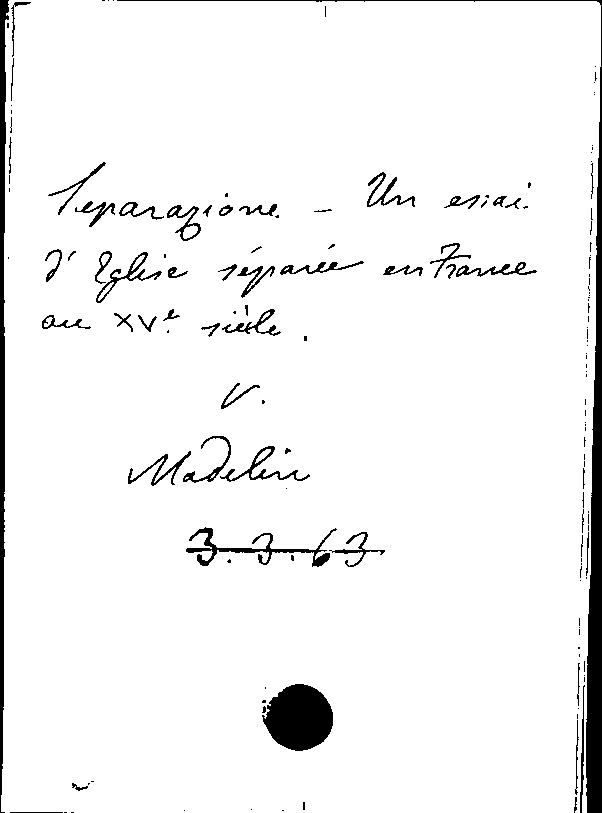 Separazione - Un essai
d'Eglise séparée en France
au XVe siècle.
V.
Madelin
3.3.63